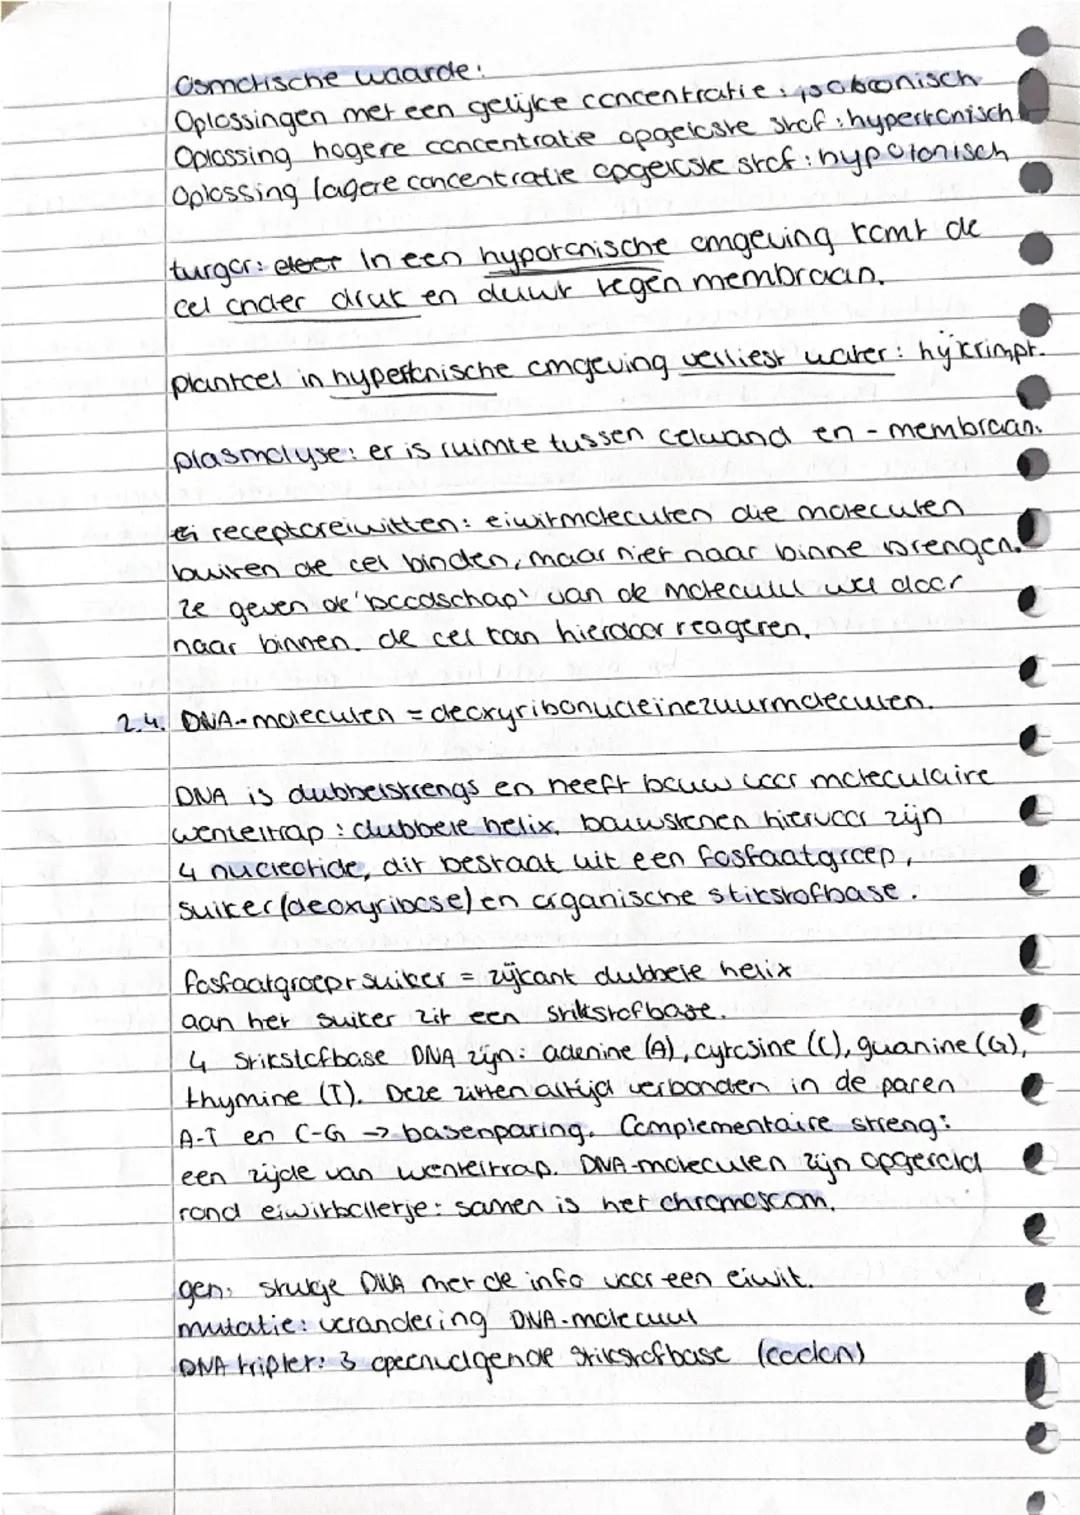 Osmotische waarde:
Oplossingen met een gelijke concentratie: isotonisch
Oplossing hogere concentratie opgeloste stof: hypertonisch
Oplossing lagere concentratie opgeloste stof: hypotonisch
turgor: In een hypotonische omgeving komt de
cel onder druk en duwt tegen membraan.
plantcel in hypertonische omgeving verliest water: hij krimpt.
plasmolyse: er is ruimte tussen celwand en -membraan.
receptoreiwitten: eiwitmoleculen die moleculen
buiten de cel binden, maar niet naar binne brengen.
Ze geven de 'boodschap' van de molecuul wel door
naar binnen. de cel kan hierdoor reageren.
2.4. DNA-moleculen = deoxyribonucleïnezuurmoleculen.
DNA is dubbelstrengs en heeft bouw voor moleculaire
wenteltrap: dubbele helix. bouwstenen hiervoor zijn
4 nucleotide, dit bestaat uit een fosfaatgroep,
suiker (deoxyribose) en organische stikstofbase.
fosfaatgroep+suiker = zijkant dubbele helix
aan het suiker zit een stikstofbase.
4 stikstofbase DNA zijn: adenine (A), cytosine (C), guanine (G),
thymine (T). Deze zitten altijd verbonden in de paren
A-T en C-G → basenparing. Complementaire streng:
een zijde van wenteltrap. DNA-moleculen zijn opgerold
rond eiwitbolletje: samen is het chromosoom.
gen: stukje DNA met de info voor een eiwit.
mutatie: verandering DNA-molecuul
DNA triplet: 3 opeenvolgende stikstofbase (codon)